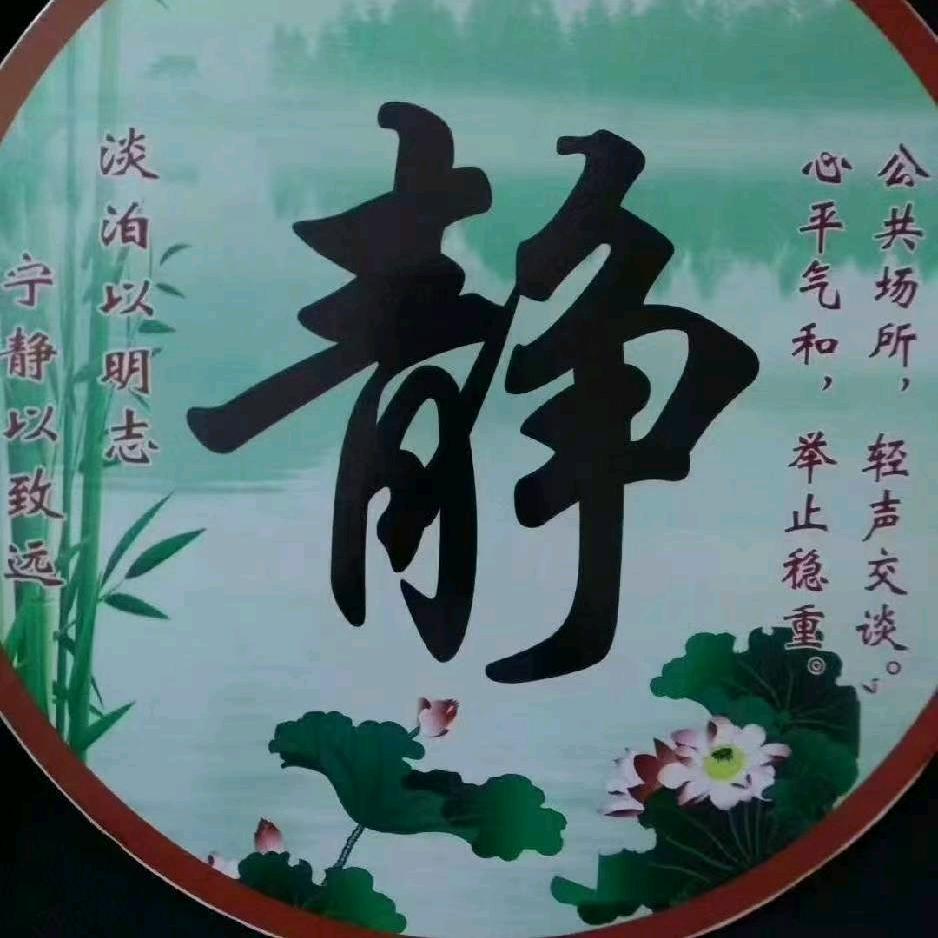 公共场所，轻声交谈。
心平气和，举止稳重。
静
淡泊以明志
宁静以致远